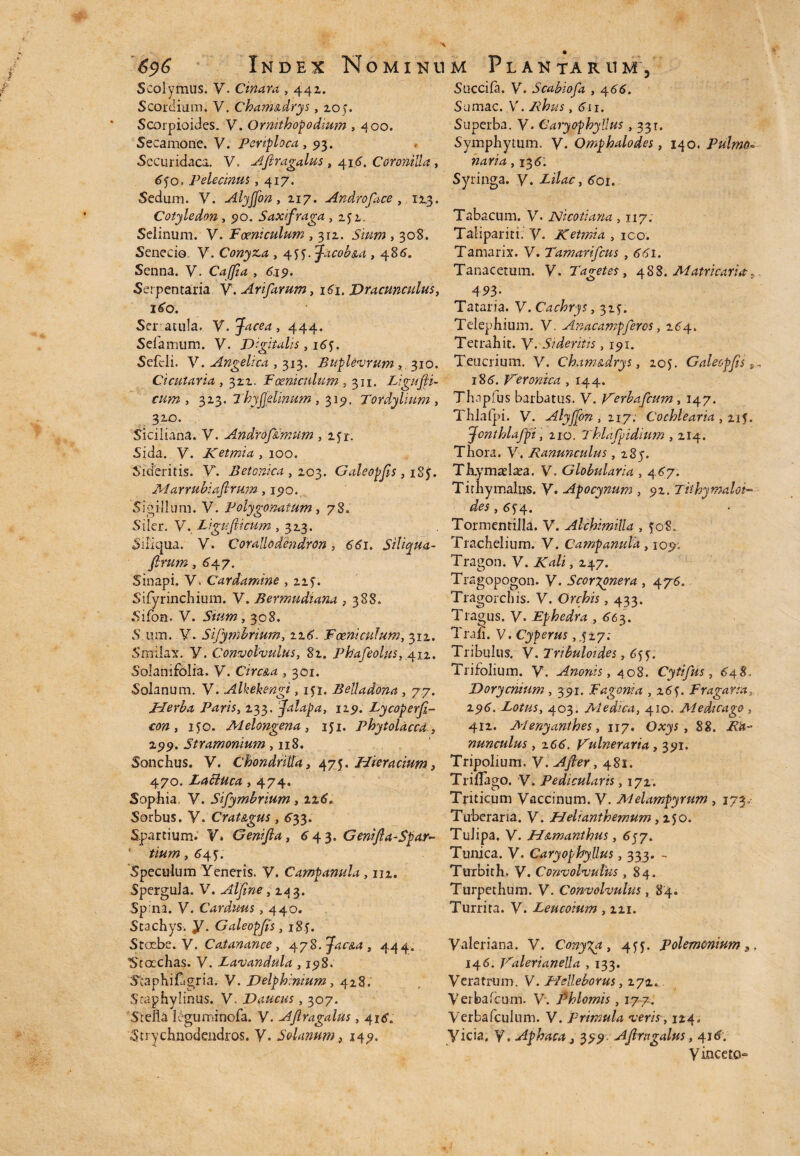 696 INDEX NOMINUM PLANTARUM,
Scolymus. V. Cinara , 442.
Scordium. V. Chamædrys , 205.
Scorpioides. V. Ornithopodium , 400.
Secamone. V. Periploca , 93.
Securidaca. V. Aſtragalus , 416. Coronilla ,
650. Pelecinus , 417.
Sedum. V. Alyſſon , 217. Androſace , 123.
Cotyledon , 90. Saxifraga , 252.
Selinum. V. Fœniculum , 312. Sium , 308.
Senecio. V. Conyza , 455. Jacobæa , 486.
Senna. V. Caſſia , 619.
Serpentaria V. Ariſarum , 161. Dracunculus,
160.
Serratula. V. Jacea , 444.
Seſamum. V. Digitalis , 165.
Seſeli. V. Angelica , 313. Buplevrum , 310.
Cicutaria , 322. Fœniculum , 311. Liguſti-
cum , 323. Thyſſelinum , 319. Tordylium ,
320.
Siciliana. V. Androſæmum , 251.
Sida. V. Ketmia , 100.
Sideritis. V. Betonica , 203. Galeopſis , 185.
Marrubiaſtrum , 190.
Sigillum. V. Polygonatum , 78.
Siler. V. Liguſticum , 323.
Siliqua. V. Corallodendron , 661. Siliqua-
ſtrum , 647.
Sinapi. V. Cardamine , 225.
Siſyrinchium. V. Bermudiana , 388.
Siſon. V. Sium , 308.
Sium. V. Siſymbrium, 226. Fœniculum, 312.
Smilax. V. Convolvulus, 82. Phaſeolus, 412.
Solanifolia. V. Circæa , 301.
Solanum. V. Alkekengi , 151. Belladona , 77.
Herba Paris, 233. Jalapa, 129. Lycoperſi-
con , 150. Melongena , 151. Phytolacca ,
299. Stramonium , 118.
Sonchus. V. Chondrilla, 475. Hieracium,
470. Lactuca , 474.
Sophia. V. Siſymbrium , 226.
Sorbus. V. Cratægus , 633.
Spartium. V. Geniſta , 643. Geniſta-Spar-
tium , 645.
Speculum Veneris. V. Campanula , 112.
Spergula. V. Alſine , 243.
Spina. V. Carduus , 440.
Stachys. V. Galeopſis , 185.
Stœbe. V. Catanance , 478. Jacæa , 444.
Stœchas. V. Lavandula , 198.
Staphiſagria. V. Delphinium , 428.
Staphylinus. V. Daucus , 307.
Stella leguminoſa. V. Aſtragalus , 416.
Strychnodendros. V. Solanum , 149.
Succiſa. V. Scabioſa , 466.
Sumac. V. Rhus , 611.
Superba. V. Caryophyllus , 331.
Symphytum. V. Omphalodes , 140. Pulmo-
naria , 136.
Syringa. V. Lilac , 601.
Tabacum. V. Nicotiana , 117.
Talipariti. V. Ketmia , 100.
Tamarix. V. Tamariſcus , 661.
Tanacetum. V. Tagetes , 488. Matricaria ,
493.
Tataria. V. Cachrys , 325.
Telephium. V. Anacampſeros , 264.
Tetrahit. V. Sideritis , 191.
Teucrium. V. Chamædrys , 205. Galeopſis ,
186. Veronica , 144.
Thapſus barbatus. V. Verbaſcum , 147.
Thlaſpi. V. Alyſſon , 217. Cochlearia , 215.
Jonthlaſpi , 210. Thlaſpidium , 214.
Thora. V. Ranunculus , 285.
Thymælæa. V. Globularia , 467.
Tithymalus. V. Apocynum , 92. Tithymaloi-
des , 654.
Tormentilla. V. Alchimilla , 508.
Trachelium. V. Campanula , 109.
Tragon. V. Kali , 247.
Tragopogon. V. Scorzonera , 476.
Tragorchis. V. Orchis , 433.
Tragus. V. Ephedra , 663.
Traſi. V. Cyperus , 527.
Tribulus. V. Tribuloides , 655.
Trifolium. V. Anonis , 408. Cytiſus , 648.
Dorycnium , 391. Fagonia , 265. Fragaria,
296. Lotus, 403. Medica, 410. Medicago ,
412. Menyanthes, 117. Oxys , 88. Ra-
nunculus , 266. Vulneraria , 391.
Tripolium. V. Aſter , 481.
Triſſago. V. Pedicularis , 172.
Triticum Vaccinum. V. Melampyrum , 173.
Tuberaria. V. Helianthemum , 250.
Tulipa. V. Hæmanthus , 657.
Tunica. V. Caryophyllus , 333.
Turbith. V. Convolvulus , 84.
Turpethum. V. Convolvulus , 84.
Turrita. V. Leucoium , 221.
Valeriana. V. Conyza , 455. Polemonium ,
146. Valerianella , 133.
Veratrum. V. Helleborus , 272.
Verbaſcum. V. Phlomis , 177.
Verbaſculum. V. Primula veris , 124.
Vicia. V. Aphaca , 399. Aſtragalus , 416.
Vinceto-